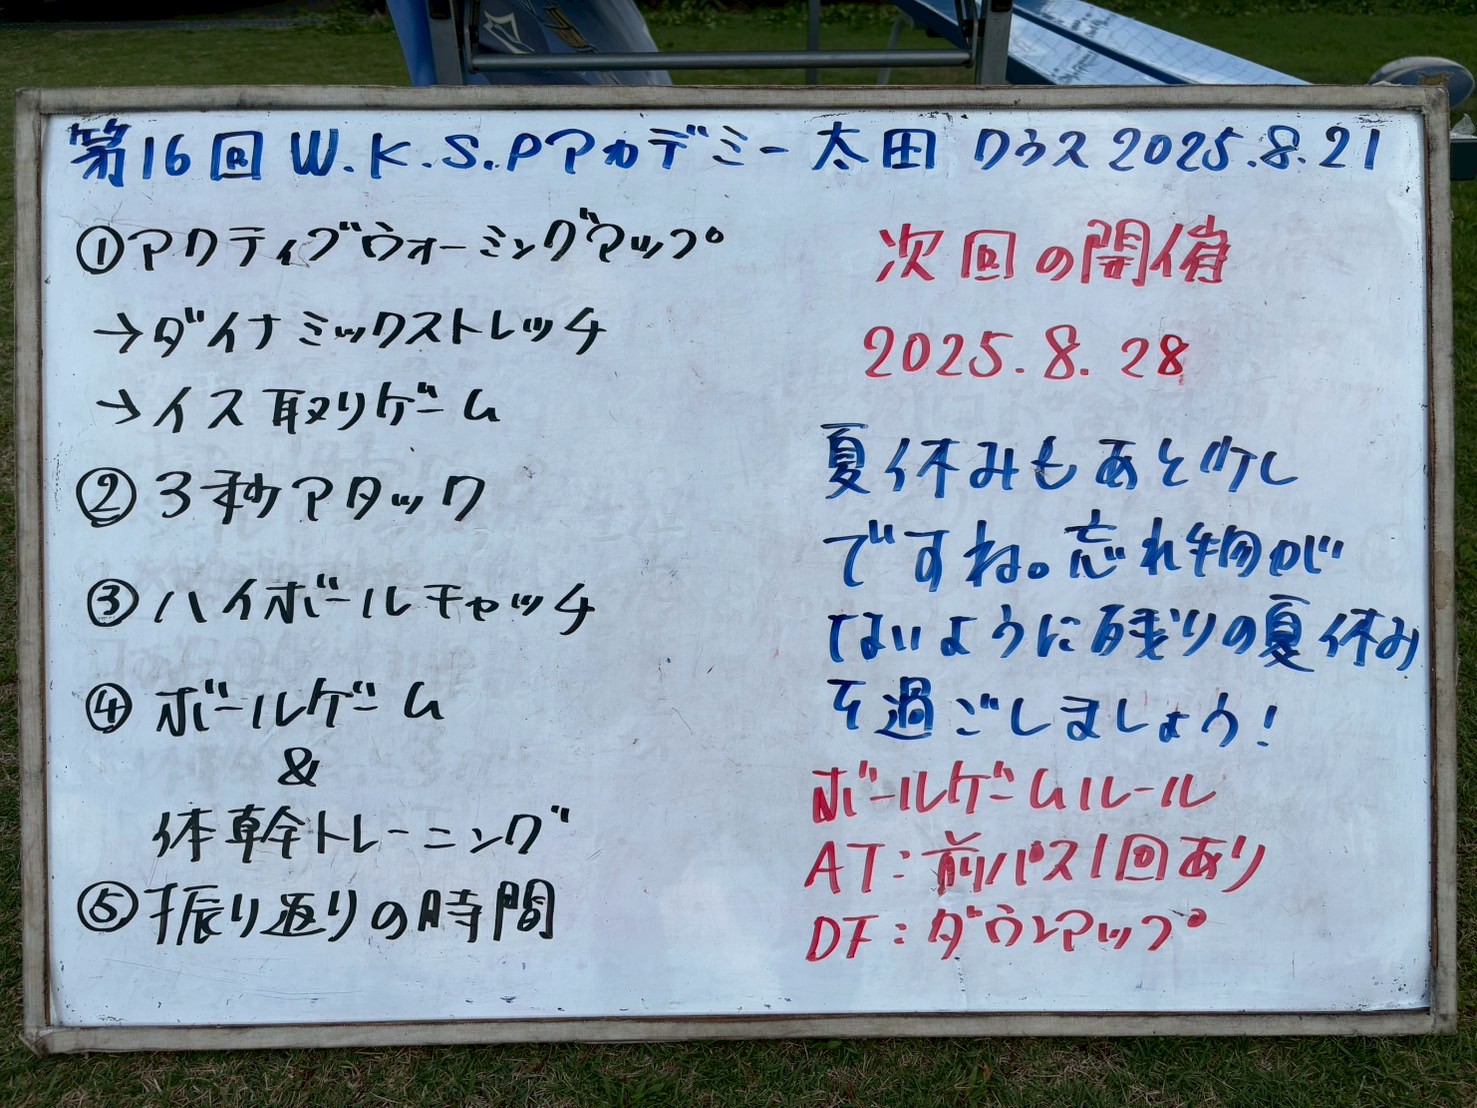 第16回 W.K.S.Pアカデミー 太田 クラス 2025.8.21
①アクティブウォーミングアップ
→ダイナミックストレッチ
→イス取りゲーム
②3秒アタック
③ハイボールキャッチ
④ボールゲーム
&
体幹トレーニング
⑤振り返りの時間
次回の開催
2025.8.28
夏休みもあと少し
ですね。忘れ物が
ないように残りの夏休み
を過ごしましょう!
ボールゲームルール
AT:前パス1回あり
DF:ダウンアップ